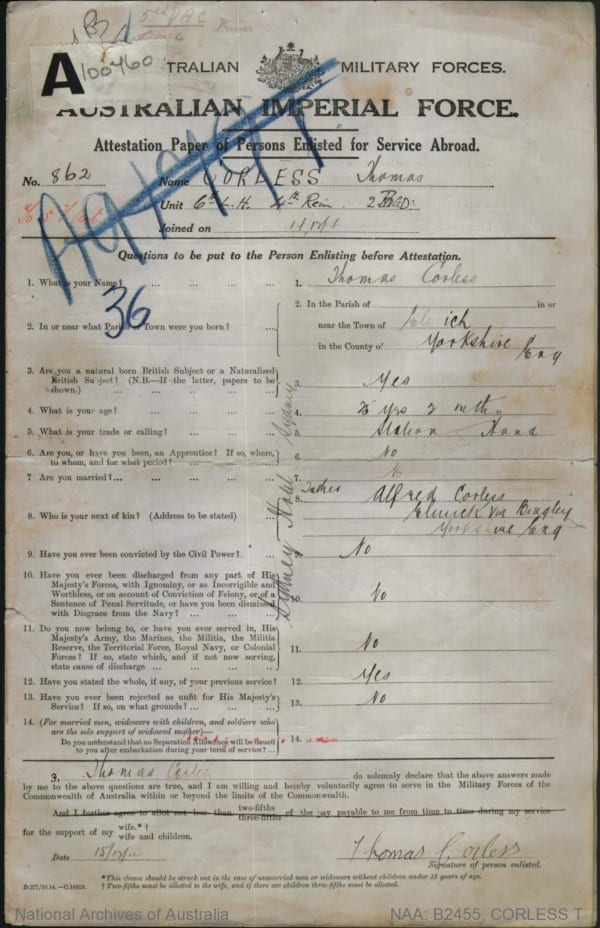 A
100460
TRALIAN MILITARY FORCES.
AUSTRALIAN IMPERIAL FORCE.
Attestation Paper of Persons Enlisted for Service Abroad.
No. 862 Name CORLESS Thomas
Unit 6th L.H. 4th Rein.
Joined on
36
Questions to be put to the Person Enlisting before Attestation.
1. What is your Name? ... ... ... ... 1. Thomas Corless
2. In or near what Parish or Town were you born? ... 2. In the Parish of in or
near the Town of
in the County of Yorkshire Eng
3. Are you a natural born British Subject or a Naturalized
British Subject? (N.B.—If the latter, papers to be
shown.) ... ... ... ... ... 3. Yes
4. What is your age? ... ... ... ... 4. yrs 2 mths
5. What is your trade or calling? ... ... ... 5. Station Hand
6. Are you, or have you been, an Apprentice? If so, where,
to whom, and for what period? ... ... 6. No
7 Are you married?... ... ... ... ... 7. No
8. Who is your next of kin? (Address to be stated) ... 8. Father Alfred Corless
Via Bingley
Yorkshire Eng
Sydney
9. Have you ever been convicted by the Civil Power? ... 9. No
10. Have you ever been discharged from any part of His
Majesty's Forces, with Ignominy, or as Incorrigible and
Worthless, or on account of Conviction of Felony, or of a
Sentence of Penal Servitude, or have you been dismissed
with Disgrace from the Navy? ... ... 10. No
11. Do you now belong to, or have you ever served in, His
Majesty's Army, the Marines, the Militia, the Militia
Reserve, the Territorial Force, Royal Navy, or Colonial
Forces? If so, state which, and if not now serving,
state cause of discharge ... ... ... 11. No
12. Have you stated the whole, if any, of your previous service? 12. Yes
13. Have you ever been rejected as unfit for His Majesty's
Service? If so, on what grounds? ... ... 13. No
14. (For married men, widowers with children, and soldiers who
are the sole support of widowed mother)—
Do you understand that no Separation Allowance will be issued
to you after embarkation during your term of service?... 14.
I, Thomas Corless do solemnly declare that the above answers made
by me to the above questions are true, and I am willing and hereby voluntarily agree to serve in the Military Forces of the
Commonwealth of Australia within or beyond the limits of the Commonwealth.
And I further agree to allot not less than two-fifths three-fifths of the pay payable to me from time to time during my service
for the support of my wife.*†
wife and children.
Date Thomas Corless
Signature of person enlisted.
*This clause should be struck out in the case of unmarried men or widowers without children under 18 years of age.
D.377/10.14.—C.14819. †Two-fifths must be allotted to the wife, and if there are children three-fifths must be allotted.
National Archives of Australia NAA: B2455, CORLESS T